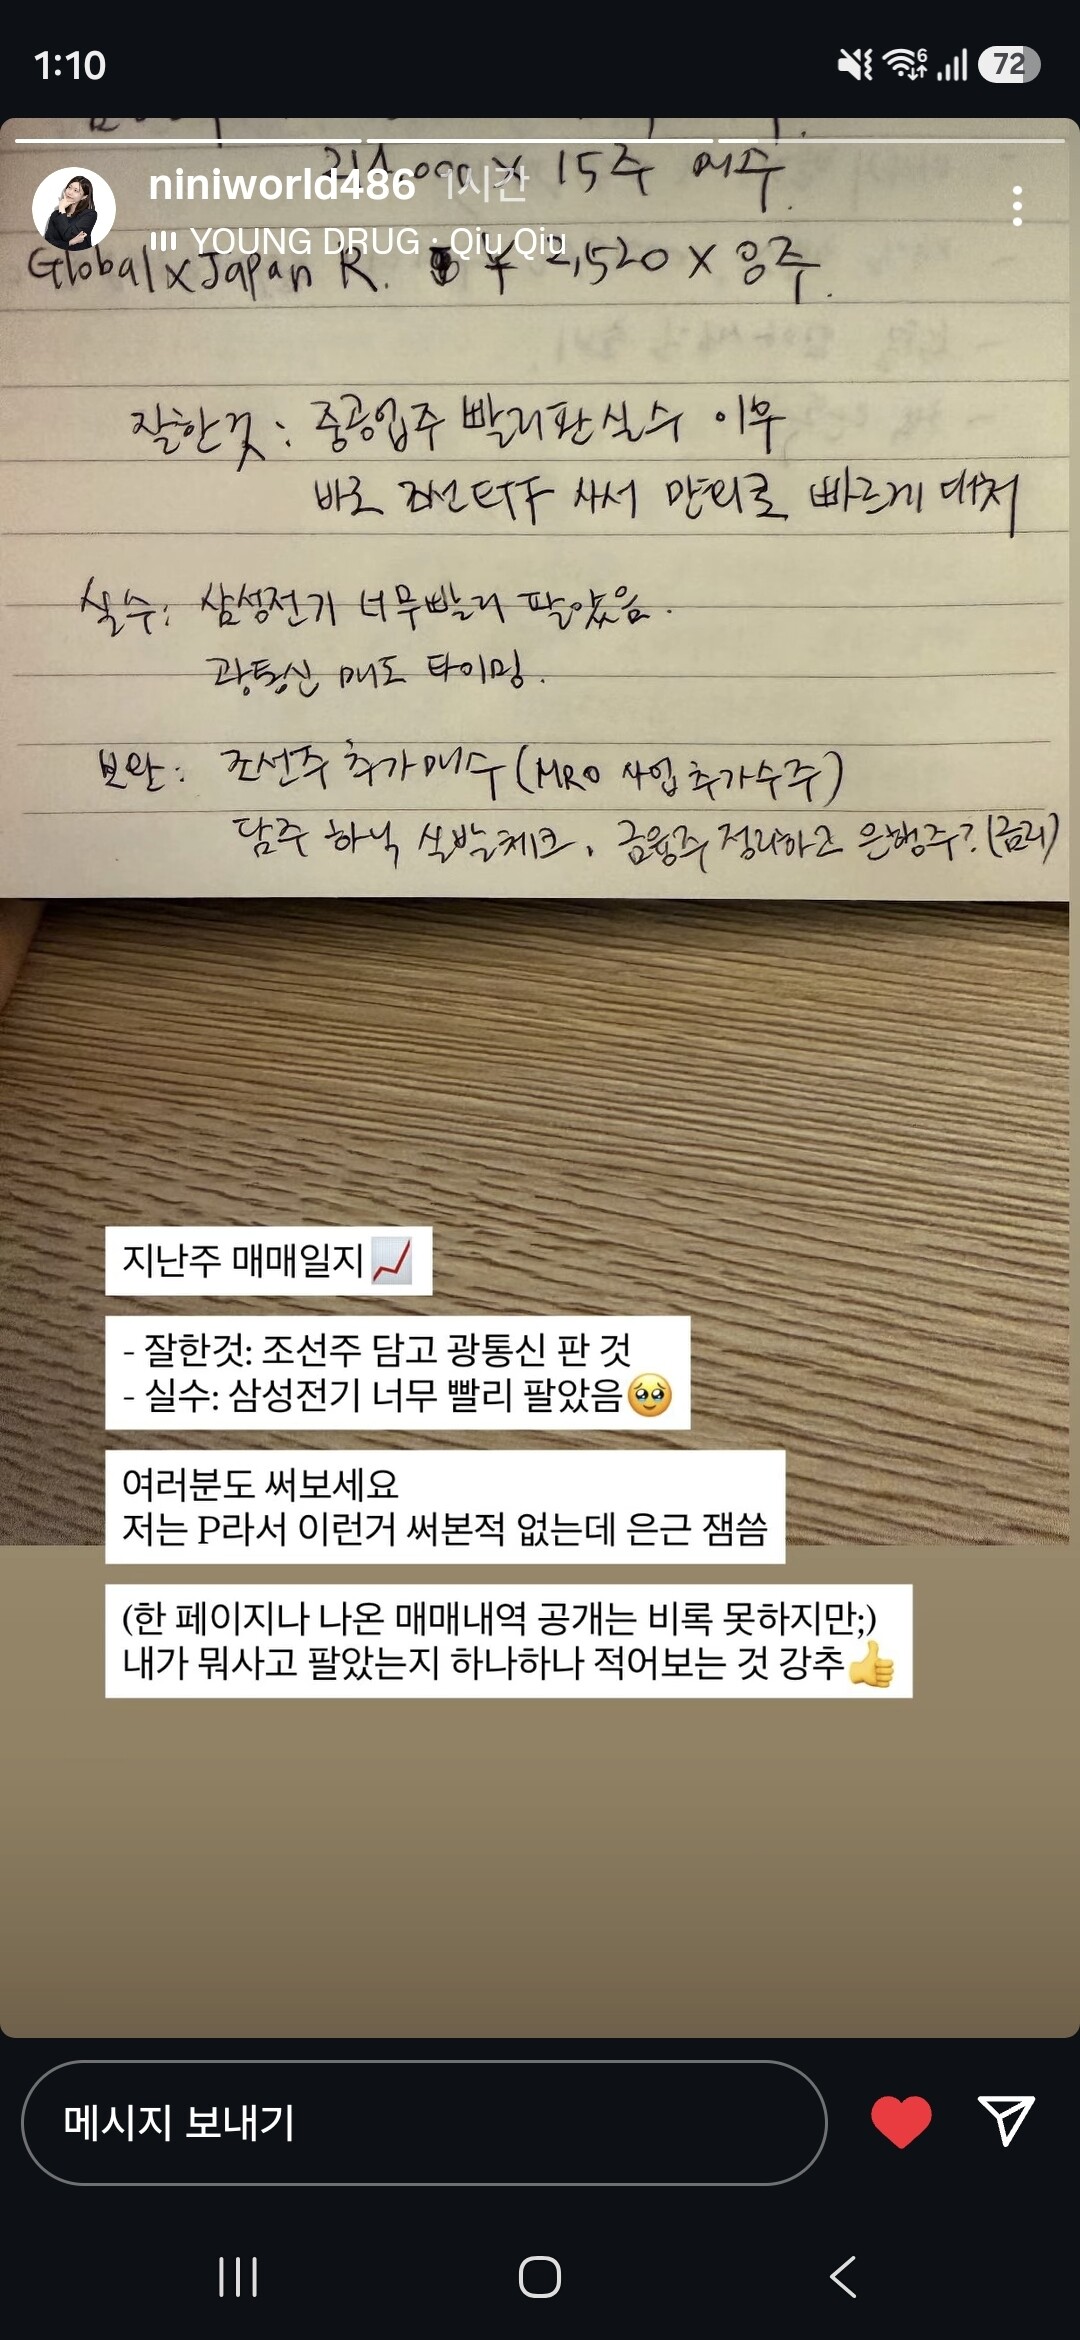 1:10
6
72
15주 매수.
niniworld486 1시간
YOUNG DRUG · Qiu Qiu
Global X Japan R. ¥ 2,520 X 8주.
잘한것: 중공업주 빨리판실수 이후
바로 조선ETF 사서 만회로 빠르게 대처
실수: 삼성전기 너무빨리 팔았음.
광통신 매도 타이밍.
보완: 조선주 추가매수 (MRO 사업 추가수주)
담주 하닉 실발체크, 금융주 정리하고 은행주? (금리)
지난주 매매일지
- 잘한것: 조선주 담고 광통신 판 것
- 실수: 삼성전기 너무 빨리 팔았음
여러분도 써보세요
저는 P라서 이런거 써본적 없는데 은근 잼씀
(한 페이지나 나온 매매내역 공개는 비록 못하지만;)
내가 뭐사고 팔았는지 하나하나 적어보는 것 강추
메시지 보내기